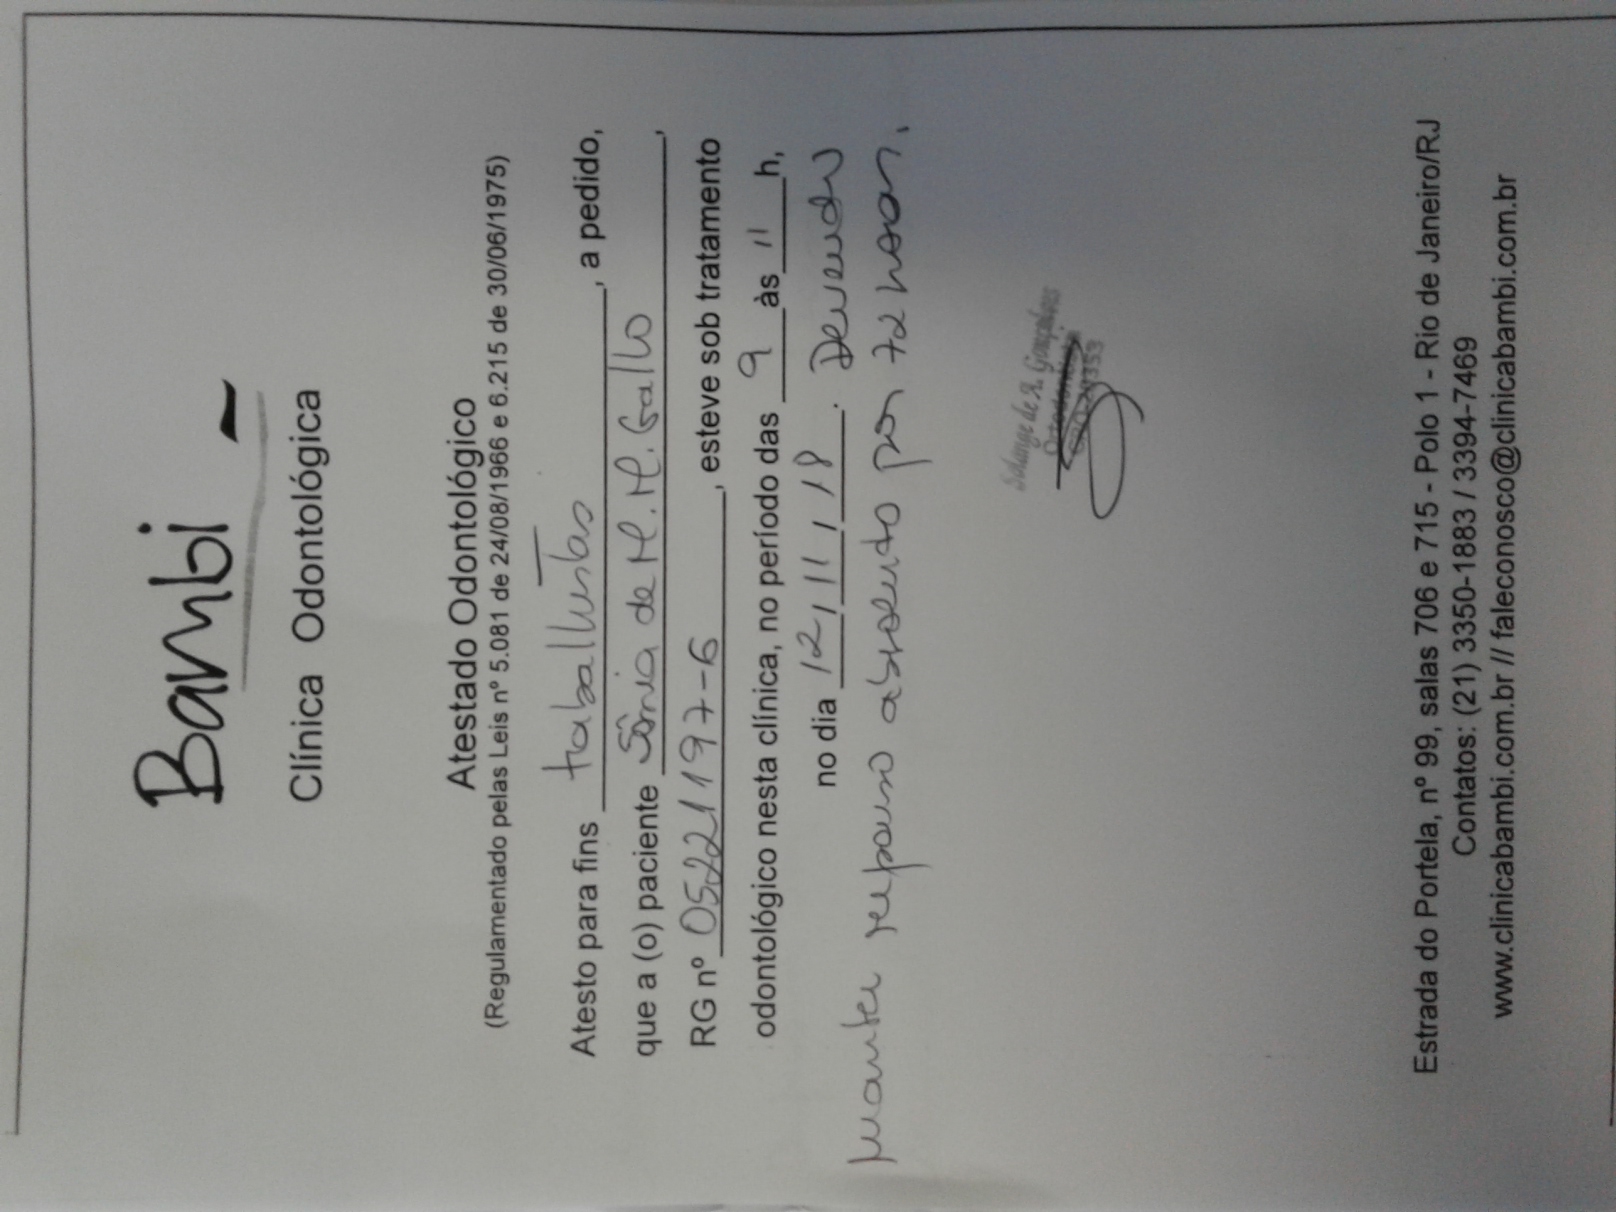 Bambi
Clínica Odontológica
Atestado Odontológico
(Regulamentado pelas Leis nº 5.081 de 24/08/1966 e 6.215 de 30/06/1975)
Atesto para fins trabalhistas, a pedido,
que a (o) paciente Sônia de M. M. Gallo,
RG nº 05221197-6, esteve sob tratamento
odontológico nesta clínica, no período das 9 às 11 h,
no dia 12/11/18. Devendo
manter repouso absoluto por 72 horas.
Solange de A. Gonçalves
Estrada do Portela, nº 99, salas 706 e 715 - Polo 1 - Rio de Janeiro/RJ
Contatos: (21) 3350-1883 / 3394-7469
www.clinicabambi.com.br // faleconosco@clinicabambi.com.br